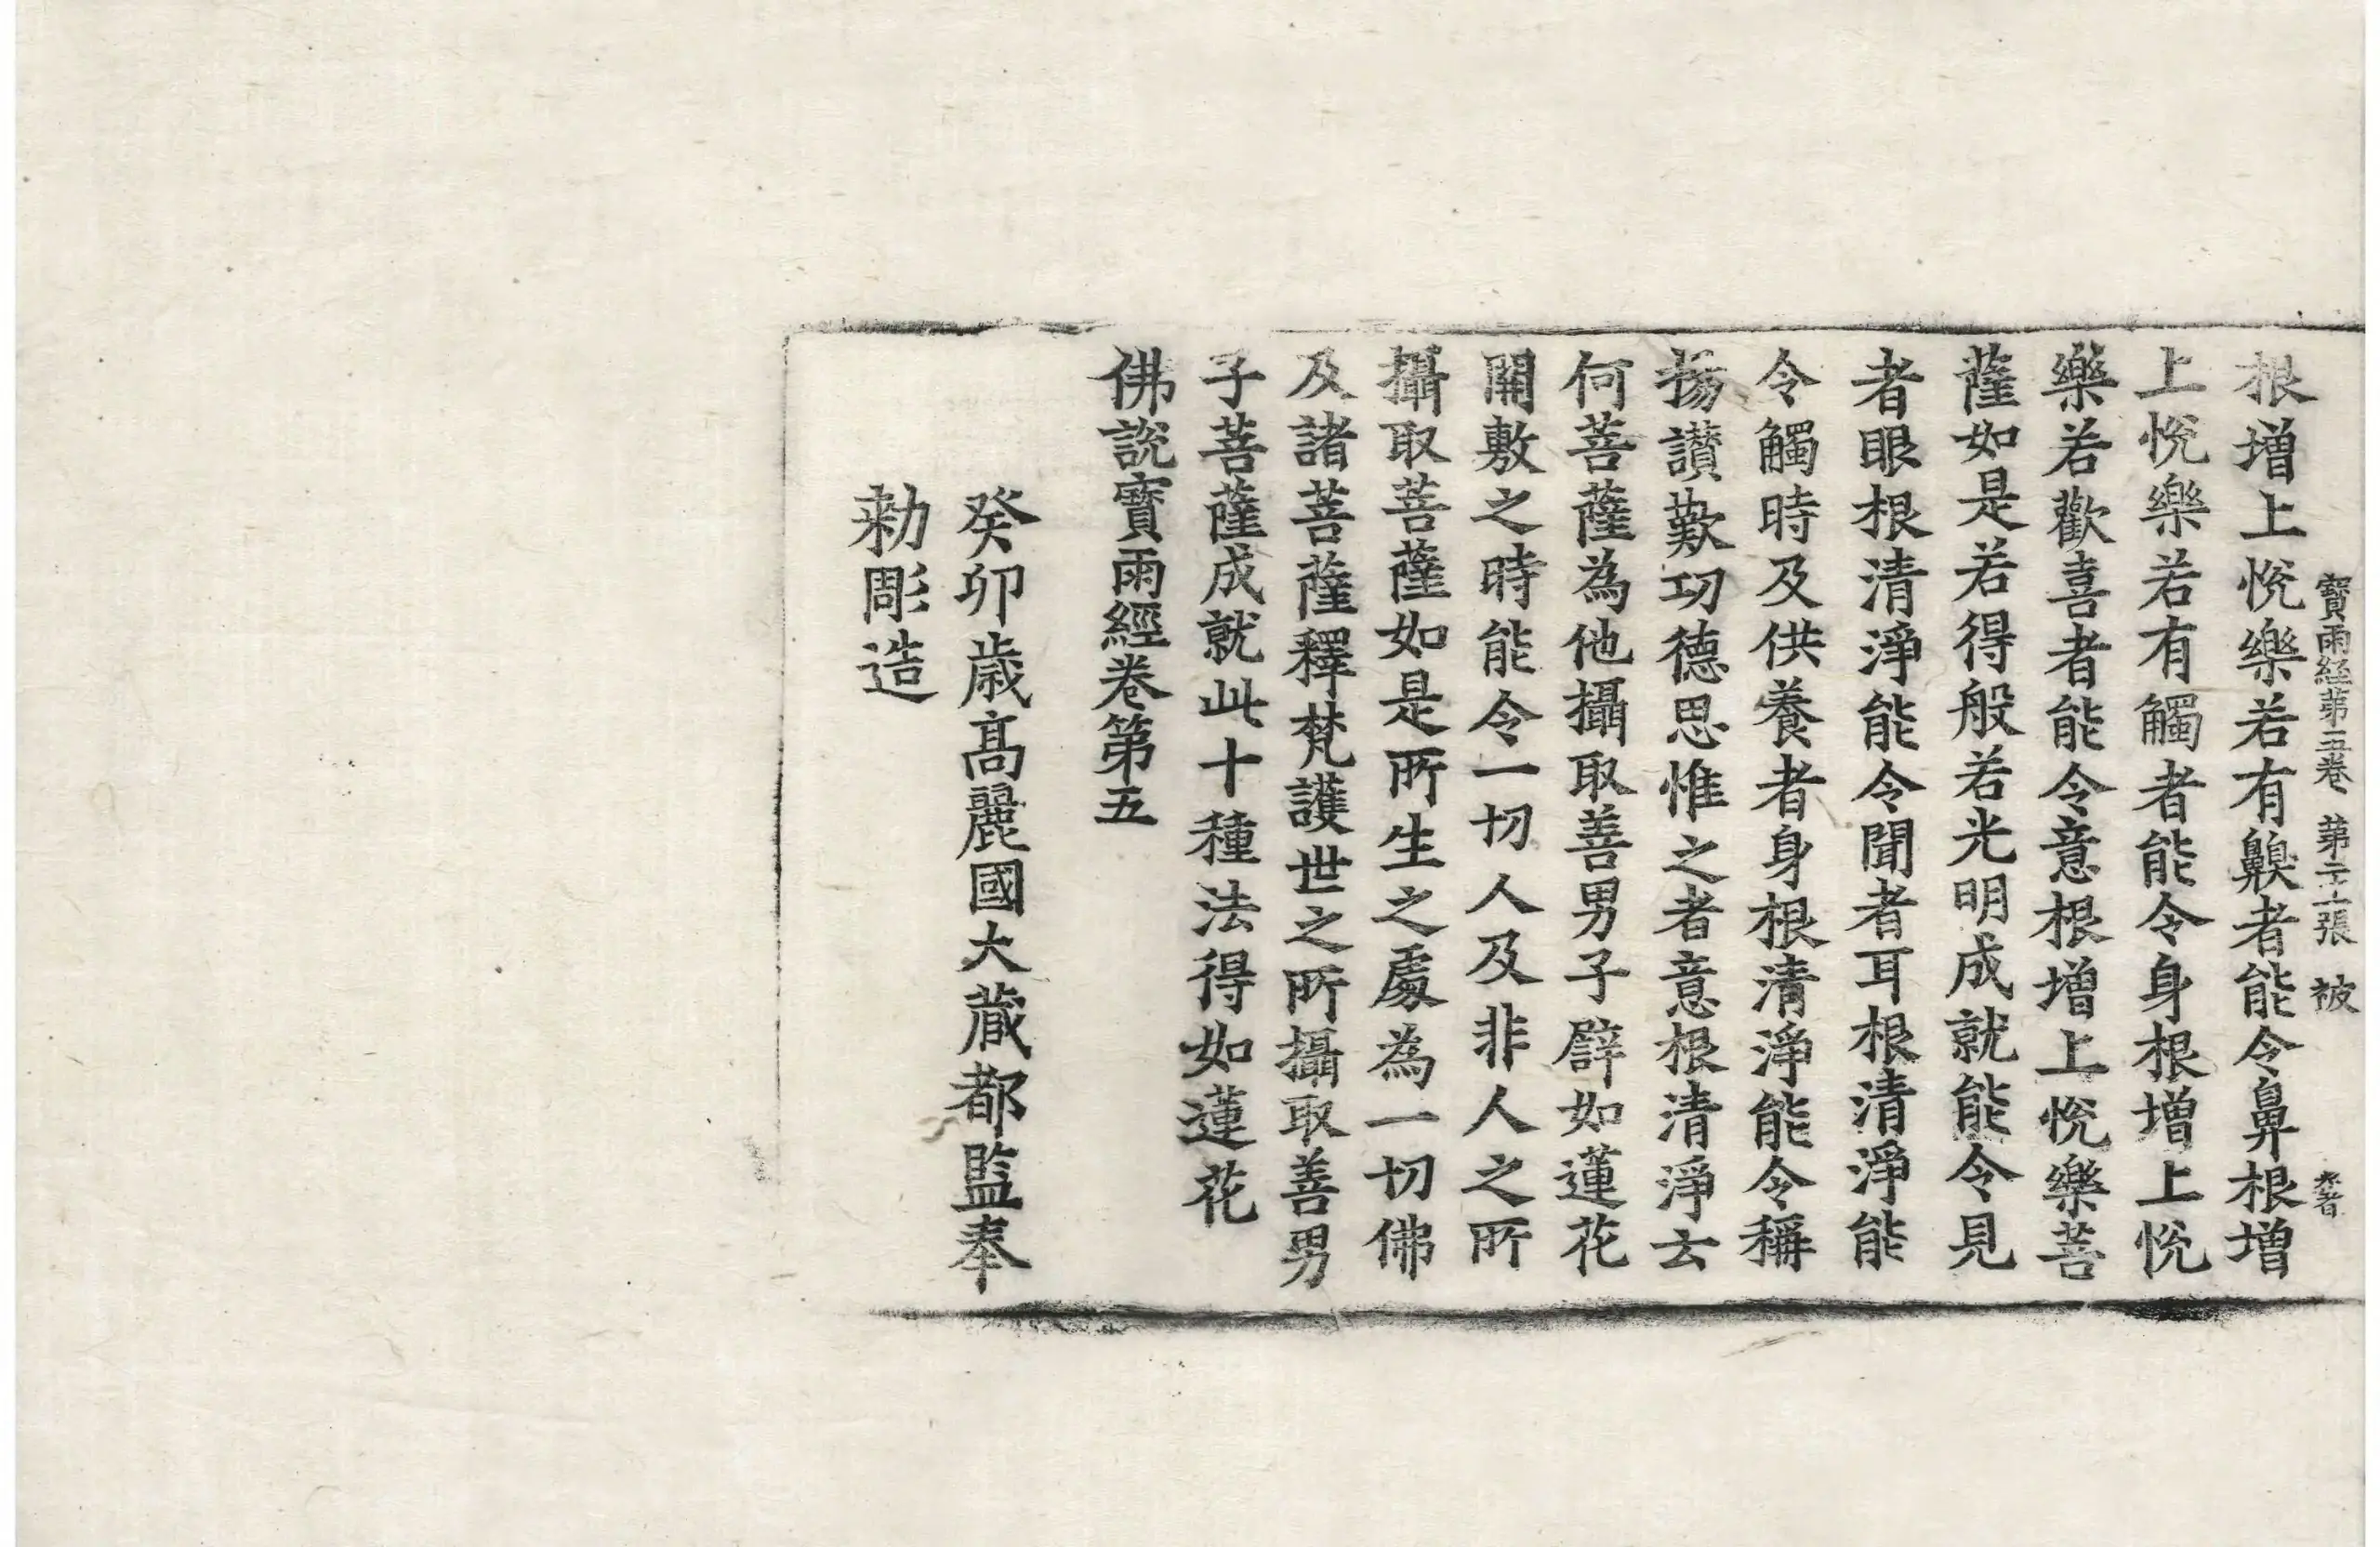 寶雨經第五卷 第二十張 被
根增上悅樂若有齅者能令鼻根增
上悅樂若有觸者能令身根增上悅
樂若歡喜者能令意根增上悅樂菩
薩如是若得般若光明成就能令見
者眼根清淨能令聞者耳根清淨能
令觸時及供養者身根清淨能令稱
揚讚歎功德思惟之者意根清淨云
何菩薩為他攝取善男子譬如蓮花
開敷之時能令一切人及非人之所
攝取菩薩如是所生之處為一切佛
及諸菩薩釋梵護世之所攝取善男
子菩薩成就此十種法得如蓮花
佛說寶雨經卷第五
癸卯歲高麗國大藏都監奉
勅彫造